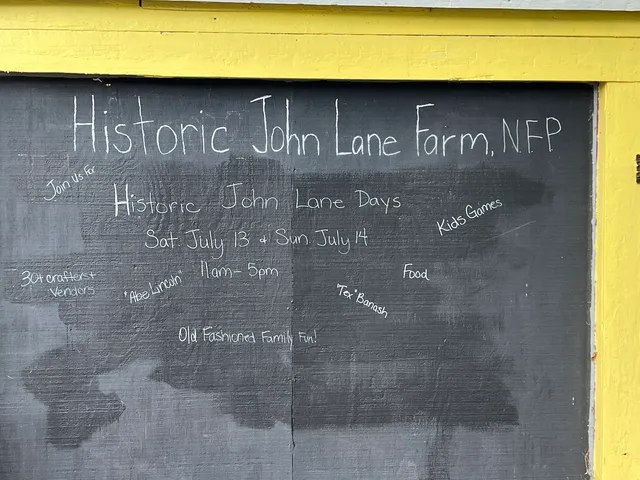 Historic John Lane Farm, NFP
Join Us For
Historic John Lane Days
Kids Games
Sat. July 13 & Sun. July 14
11am - 5pm
30+ crafters +
Vendors
"Abe Lincoln"
"Tex" Banash
Food
Old Fashioned Family Fun!